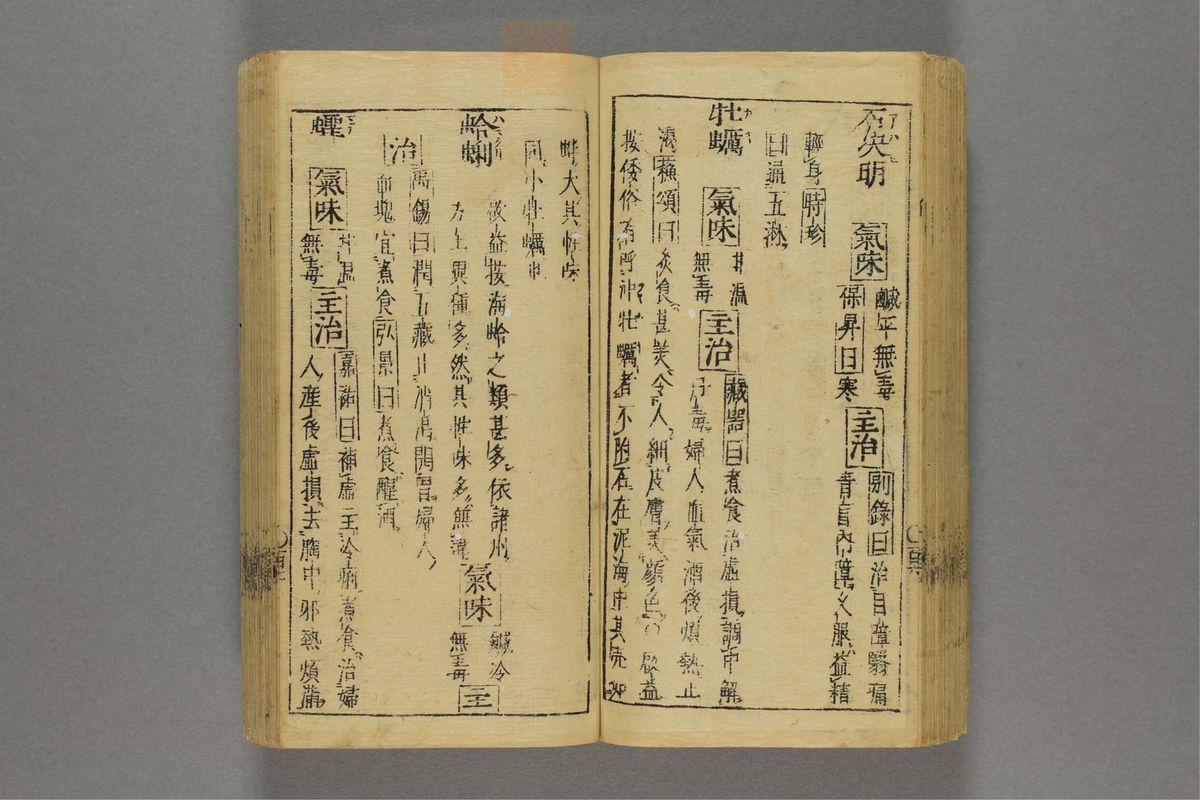 石決明
氣味
鹹平無毒
保昇曰寒
主治
別錄曰治目障翳痛
青盲內障久服益精
輕身時珍
曰通五淋
牡蠣
氣味
甘溫
無毒
主治
藏器曰煮食治虛損調中解
丹毒婦人血氣酒後煩熱止
渴蘇頌曰炙食甚美令人細皮膚美顏色
啟益
按倭俗有呼沖牡蠣者不附石在泥海中其売如
蛤大其性味
同小牡蠣也
蛤蜊
啟益按海蛤之類甚多依諸州
方土異種多然其性味多無違
氣味
鹹冷
無毒
主
治
禹錫曰潤五藏止消渴開胃婦人
血塊宜煮食弘景曰煮食醒酒
蟶
氣味
甘溫
無毒
主治
嘉祐曰補虛主冷痢煮食治婦
人產後虛損去胸中邪熱煩滿